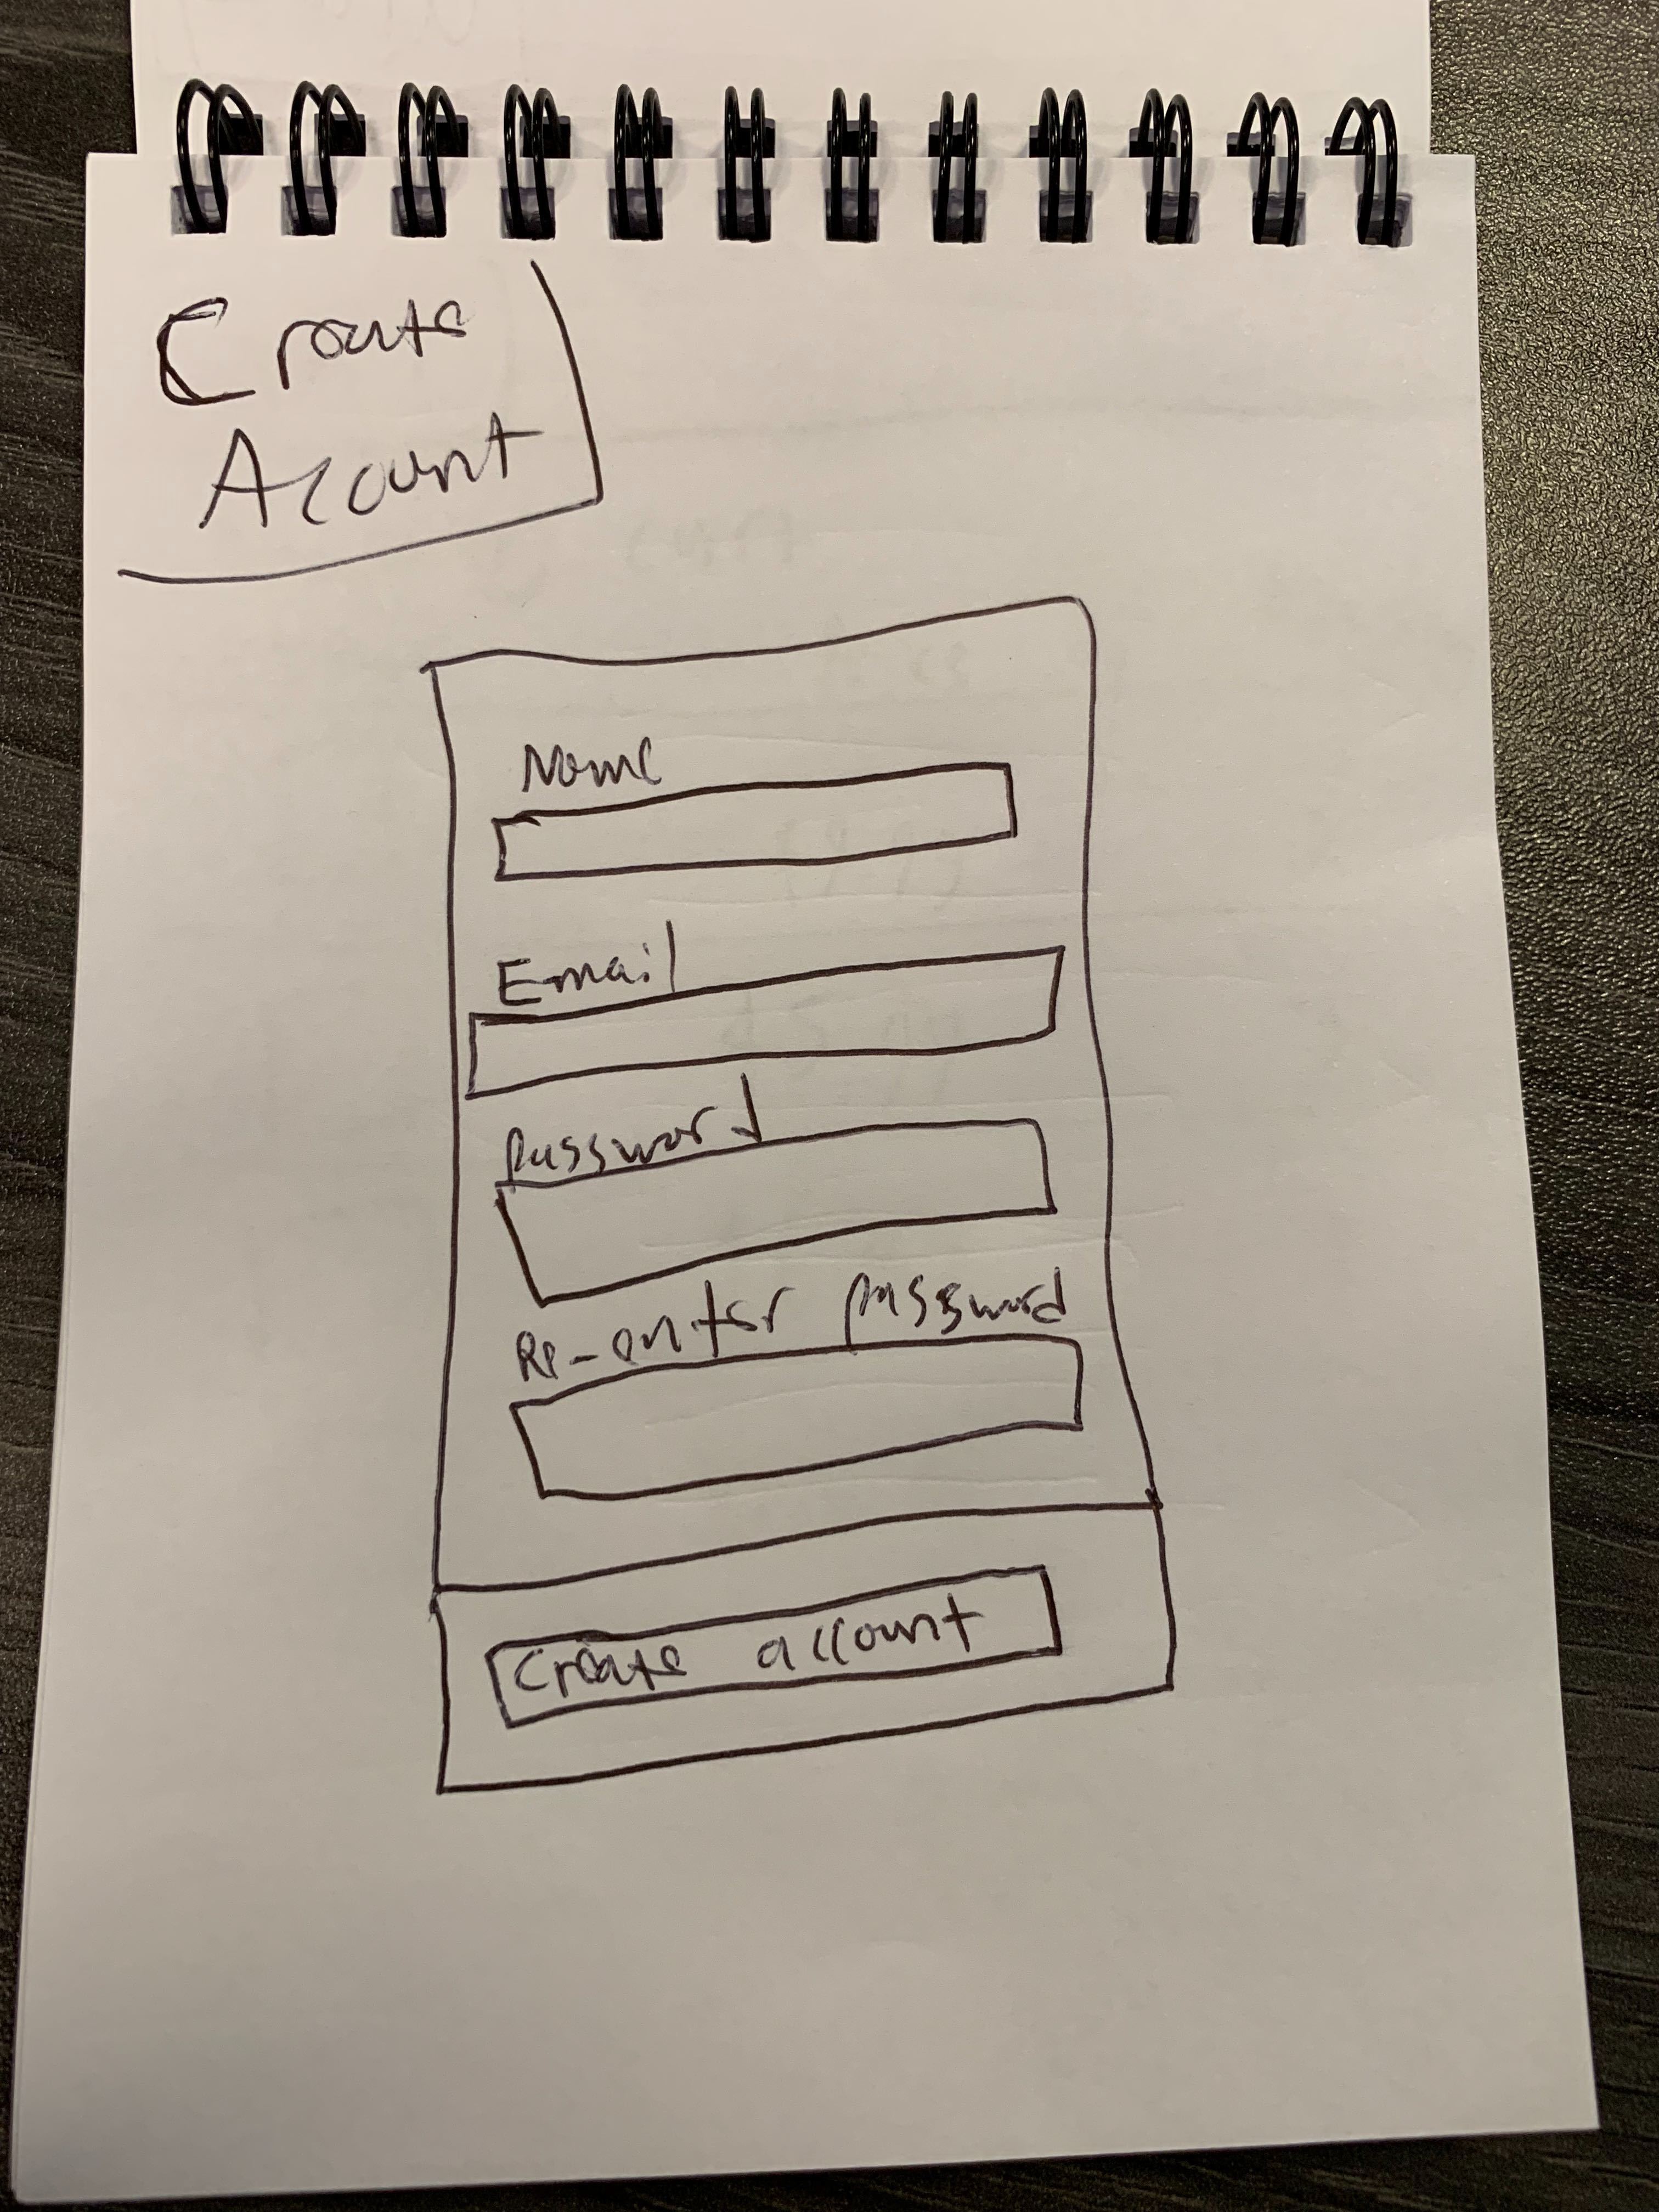 Create
Acount
Name
Email
password
Re-enter password
Create account